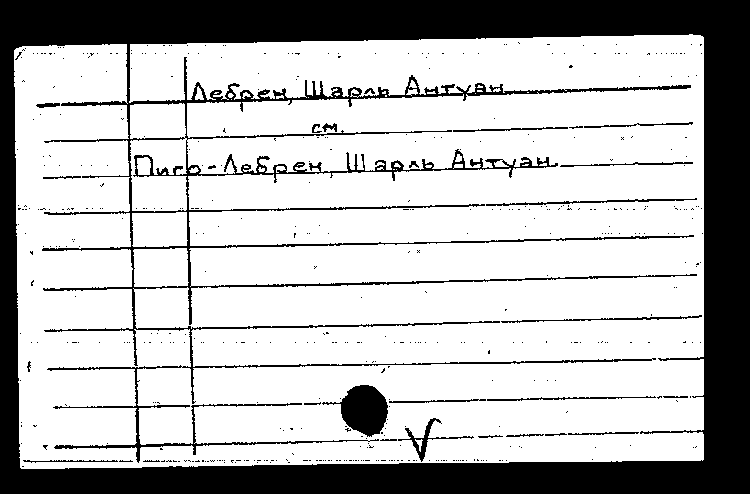 Лебрен, Шарль Антуан
см.
Пиго-Лебрен, Шарль Антуан.